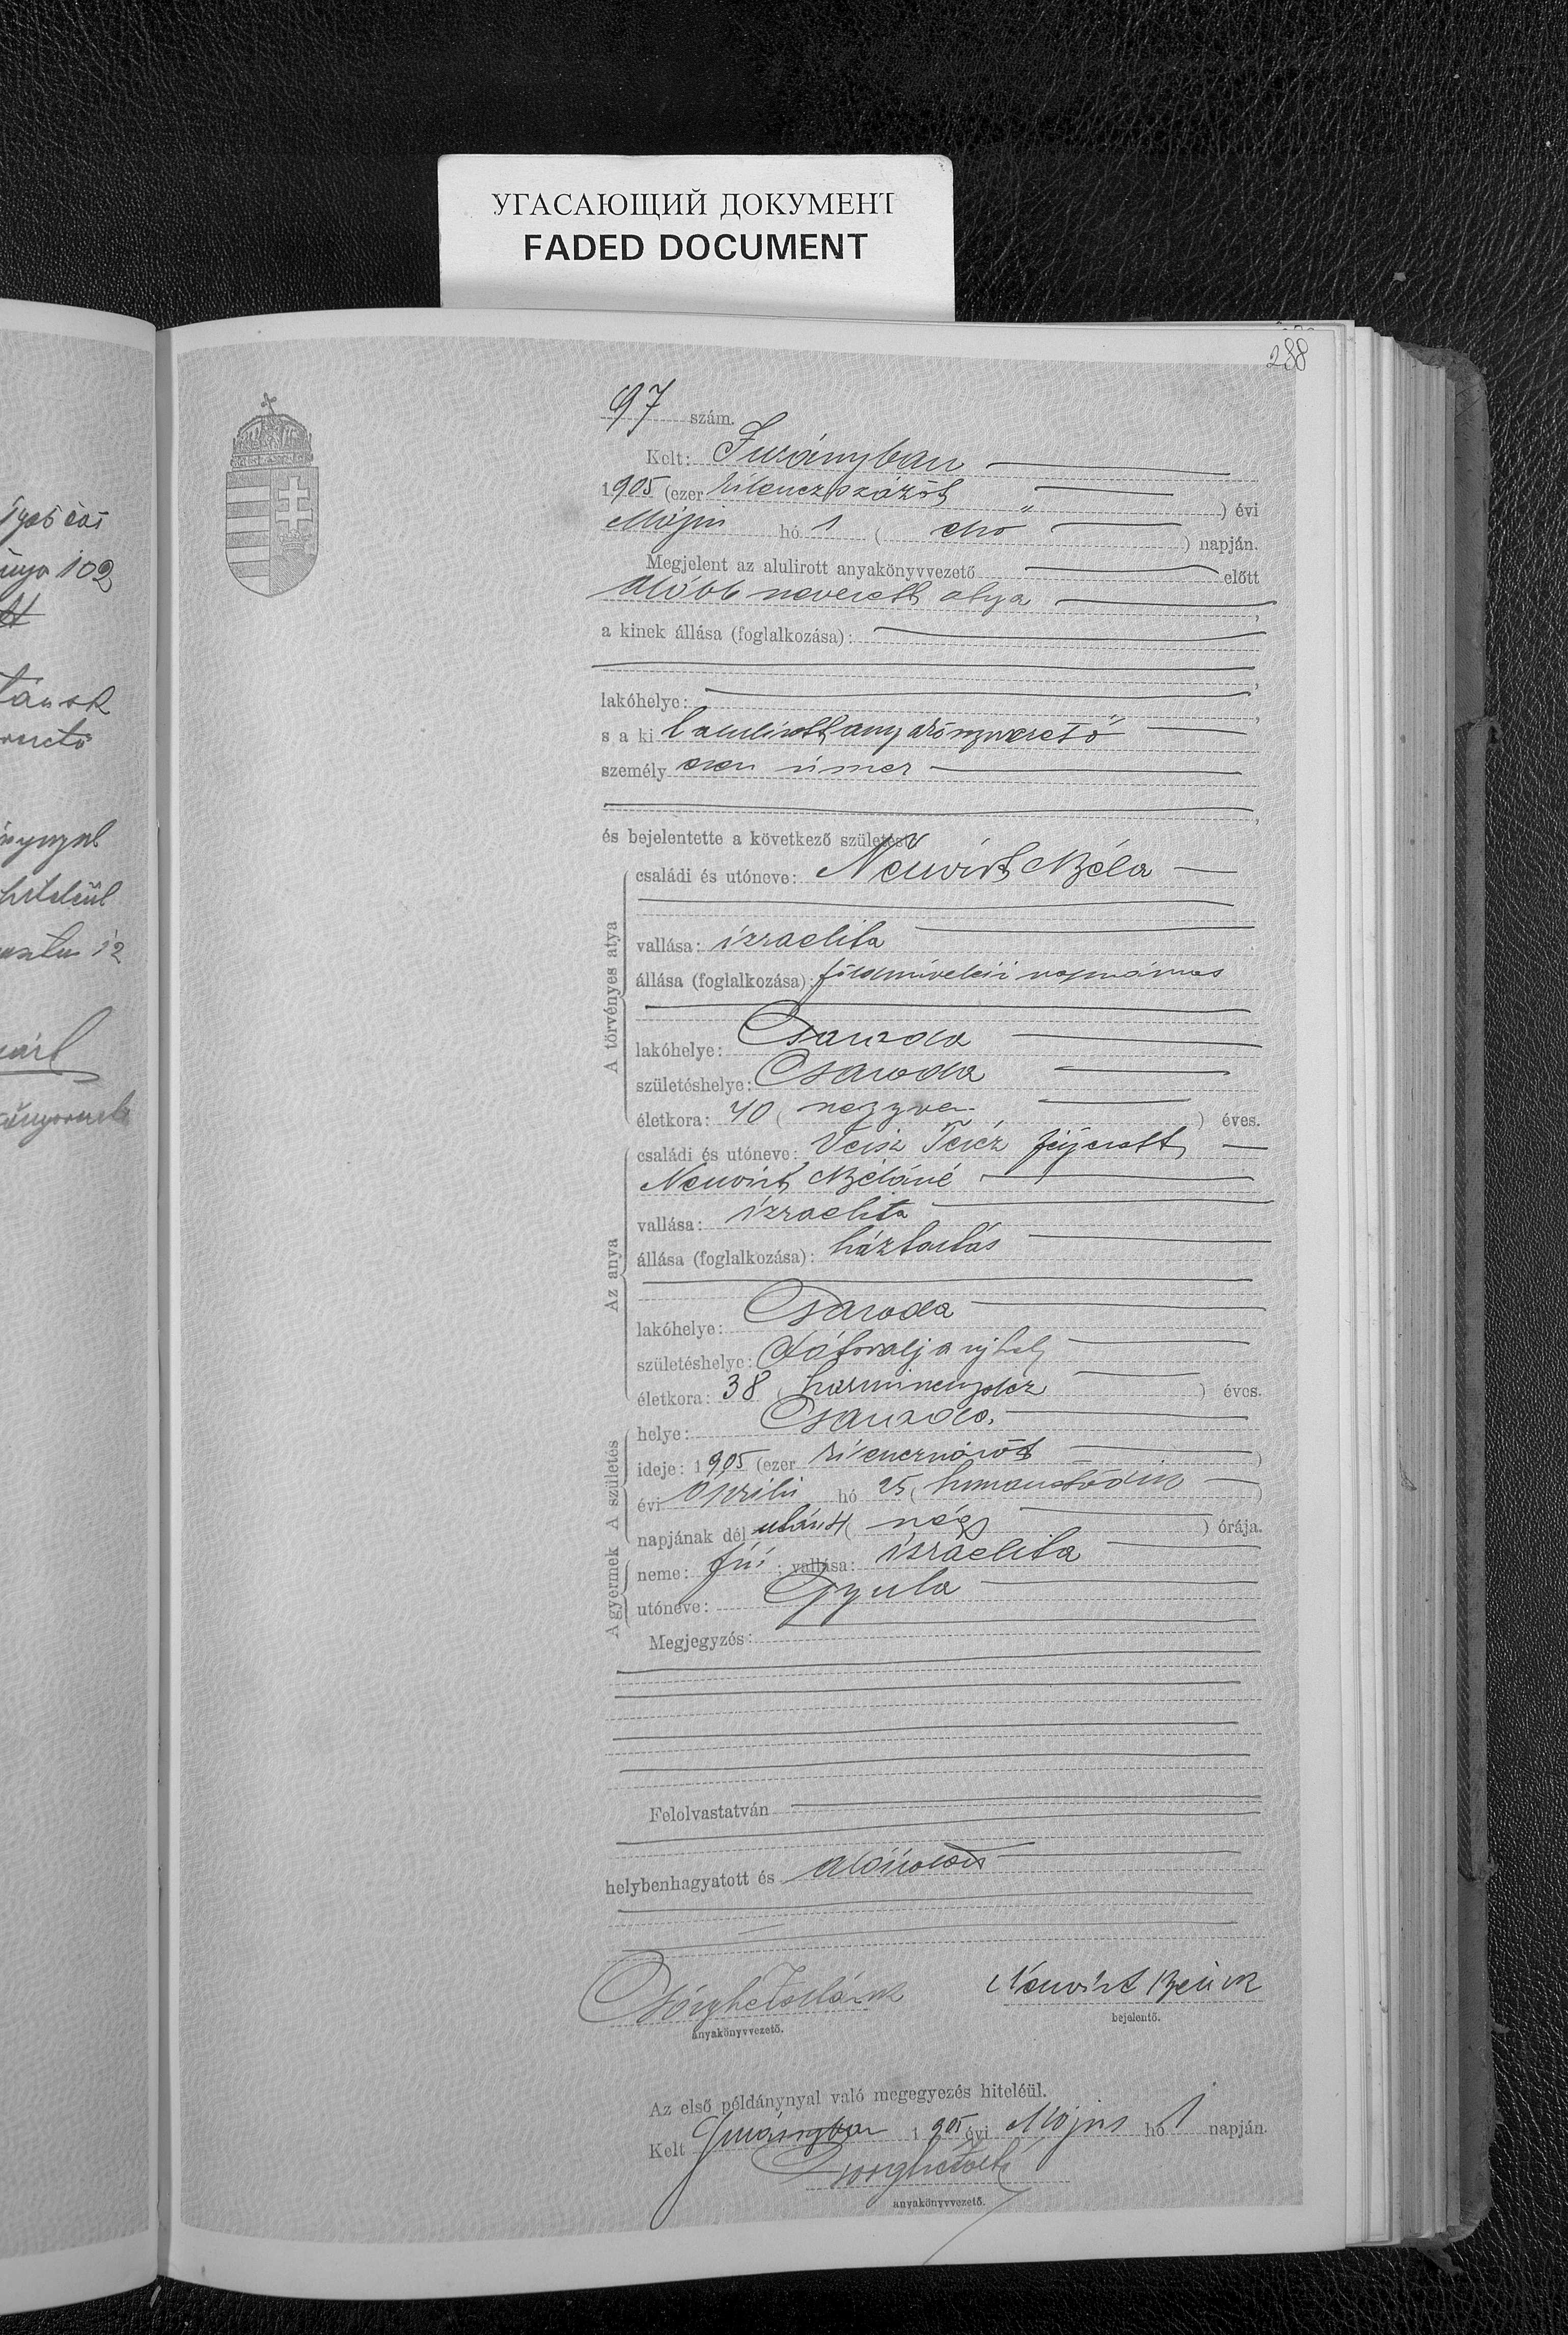 УГАСАЮЩИЙ ДОКУМЕНТ
FADED DOCUMENT
288
97 szám.
Kelt: Surányban
1905 (ezer kilenczszázöt ) évi
Május hó 1 ( első ) napján.
Megjelent az alulirott anyakönyvvezető előtt
alább nevezett atya ,
a kinek állása (foglalkozása):
,
lakóhelye: ,
s a ki t alulirott anyakönyvvezető
személy esen ismer
,
és bejelentette a következő születést
A törvényes atya
családi és utóneve: Neuvirt Béla
vallása: izraelita
állása (foglalkozása): földmivelési napszámos
lakóhelye: Csaroda
születéshelye: Csaroda
életkora: 40 ( negyven ) éves.
Az anya
családi és utóneve: Veisz Teréz férjezett
Neuvirt Béláné
vallása: izraelita
állása (foglalkozása): háztartás
lakóhelye: Csaroda
születéshelye: Sátoralja ujhely
életkora: 38 ( harmincznyolcz ) éves.
A születés
helye: Csaroda
ideje: 1905 (ezer kilenczszázöt )
évi április hó 25 ( huszonötödik )
napjának dél után 4 ( négy ) órája.
A gyermek
neme: fiú ; vallása: izraelita
utóneve: Gyula
Megjegyzés:
Felolvastatván
helybenhagyatott és aláiratott
anyakönyvvezető.
Neuvirt Béla
bejelentő.
Az első példánynyal való megegyezés hiteléül.
Kelt 1905 évi Május hó 1 napján.
anyakönyvvezető.